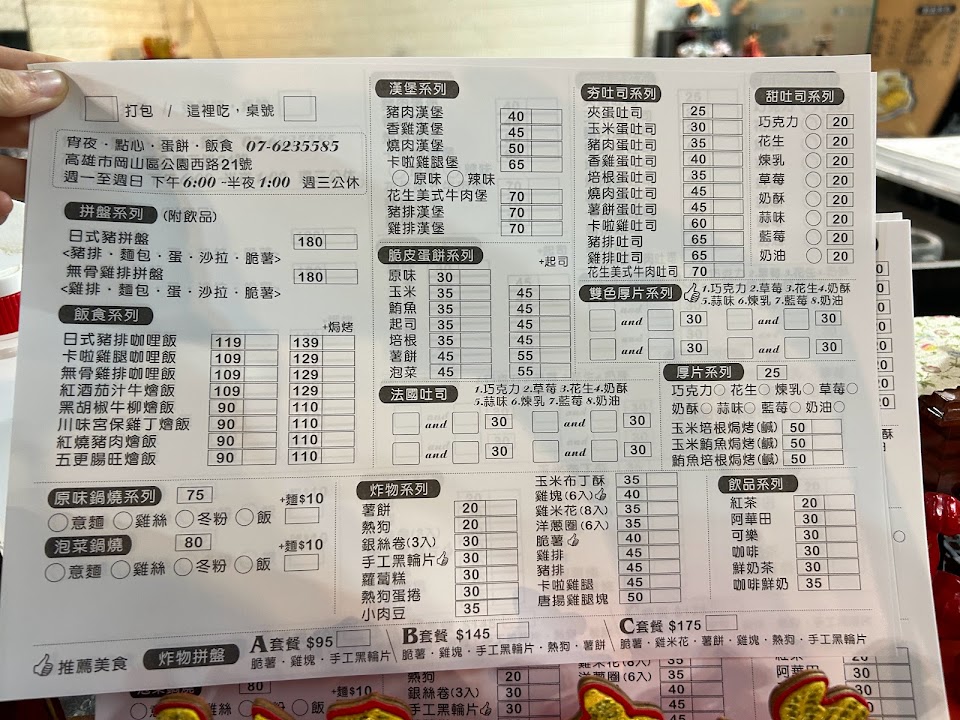 打包 / 這裡吃，桌號
宵夜・點心・蛋餅・飯食 07-6235585
高雄市岡山區公園西路21號
週一至週日 下午6:00 -半夜1:00 週三公休
拼盤系列 (附飲品)
日式豬拼盤 180
<豬排・麵包・蛋・沙拉・脆薯>
無骨雞排拼盤 180
<雞排・麵包・蛋・沙拉・脆薯>
飯食系列 +焗烤
日式豬排咖哩飯 119 139
卡啦雞腿咖哩飯 109 129
無骨雞排咖哩飯 109 129
紅酒茄汁牛燴飯 109 129
黑胡椒牛柳燴飯 90 110
川味宮保雞丁燴飯 90 110
紅燒豬肉燴飯 90 110
五更腸旺燴飯 90 110
漢堡系列
豬肉漢堡 40
香雞漢堡 45
燒肉漢堡 50
卡啦雞腿堡 65
原味 辣味
花生美式牛肉堡 70
豬排漢堡 70
雞排漢堡 70
脆皮蛋餅系列 +起司
原味 30
玉米 35 45
鮪魚 35 45
起司 35 45
培根 35 45
薯餅 45 55
泡菜 45 55
法國吐司 1.巧克力 2.草莓 3.花生 4.奶酥
5.蒜味 6.煉乳 7.藍莓 8.奶油
and 30 and 30
and 30 and 30
夯吐司系列
夾蛋吐司 25
玉米蛋吐司 30
豬肉蛋吐司 35
香雞蛋吐司 40
培根蛋吐司 35
燒肉蛋吐司 45
薯餅蛋吐司 45
卡啦雞吐司 60
豬排吐司 65
雞排吐司 65
花生美式牛肉吐司 70
甜吐司系列
巧克力 20
花生 20
煉乳 20
草莓 20
奶酥 20
蒜味 20
藍莓 20
奶油 20
雙色厚片系列 1.巧克力 2.草莓 3.花生 4.奶酥
5.蒜味 6.煉乳 7.藍莓 8.奶油
and 30 and 30
and 30 and 30
厚片系列 25
巧克力 花生 煉乳 草莓
奶酥 蒜味 藍莓 奶油
玉米培根焗烤(鹹) 50
玉米鮪魚焗烤(鹹) 50
鮪魚培根焗烤(鹹) 50
原味鍋燒系列 75 +麵$10
意麵 雞絲 冬粉 飯
泡菜鍋燒 80 +麵$10
意麵 雞絲 冬粉 飯
炸物系列
薯餅 20
熱狗 20
銀絲卷(3入) 30
手工黑輪片 30
蘿蔔糕 30
熱狗蛋捲 30
小肉豆 35
玉米布丁酥 35
雞塊(6入) 40
雞米花(8入) 35
洋蔥圈(6入) 35
脆薯 40
雞排 45
豬排 45
卡啦雞腿 45
唐揚雞腿塊 50
飲品系列
紅茶 20
阿華田 30
可樂 30
咖啡 30
鮮奶茶 30
咖啡鮮奶 35
推薦美食 炸物拼盤
A套餐 $95
脆薯・雞塊・手工黑輪片
B套餐 $145
脆薯・雞塊・手工黑輪片・熱狗・薯餅
C套餐 $175
脆薯・雞米花・薯餅・雞塊・熱狗・手工黑輪片